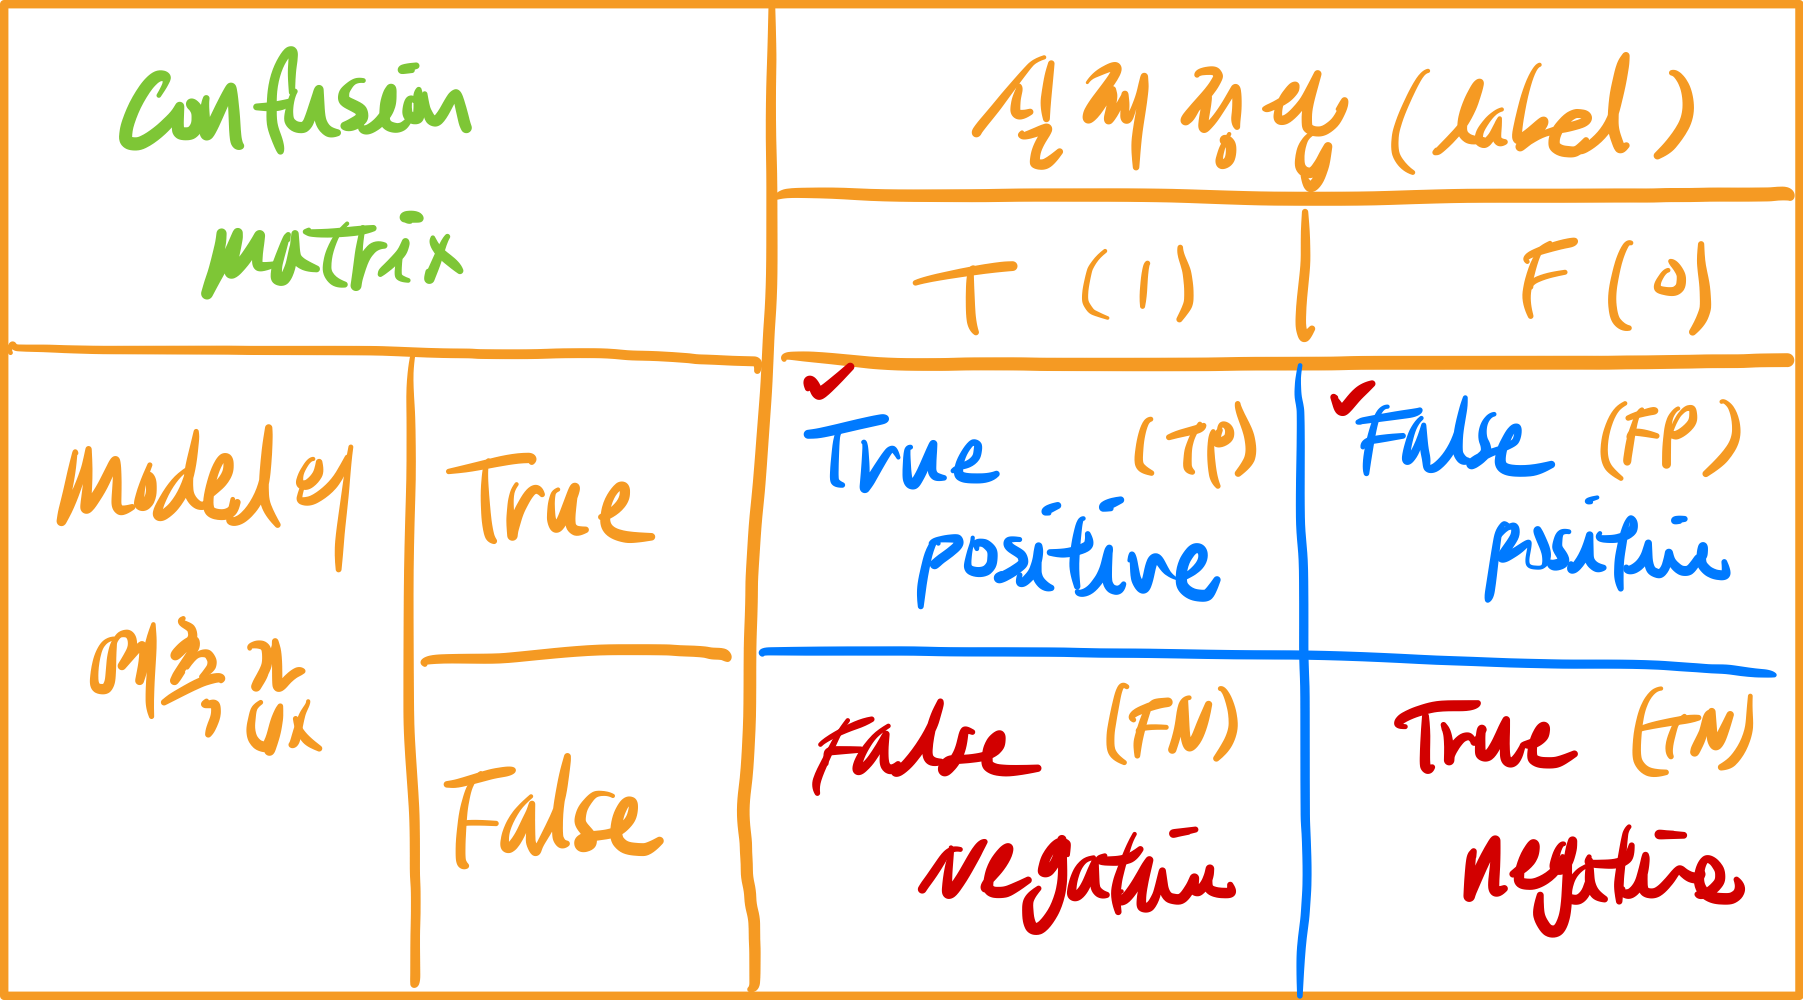 Confusion
matrix
실제 정답 (label)
T (1)
F (0)
Model의
예측값
True
True (TP)
positive
False (FP)
positive
False
False (FN)
Negative
True (TN)
negative